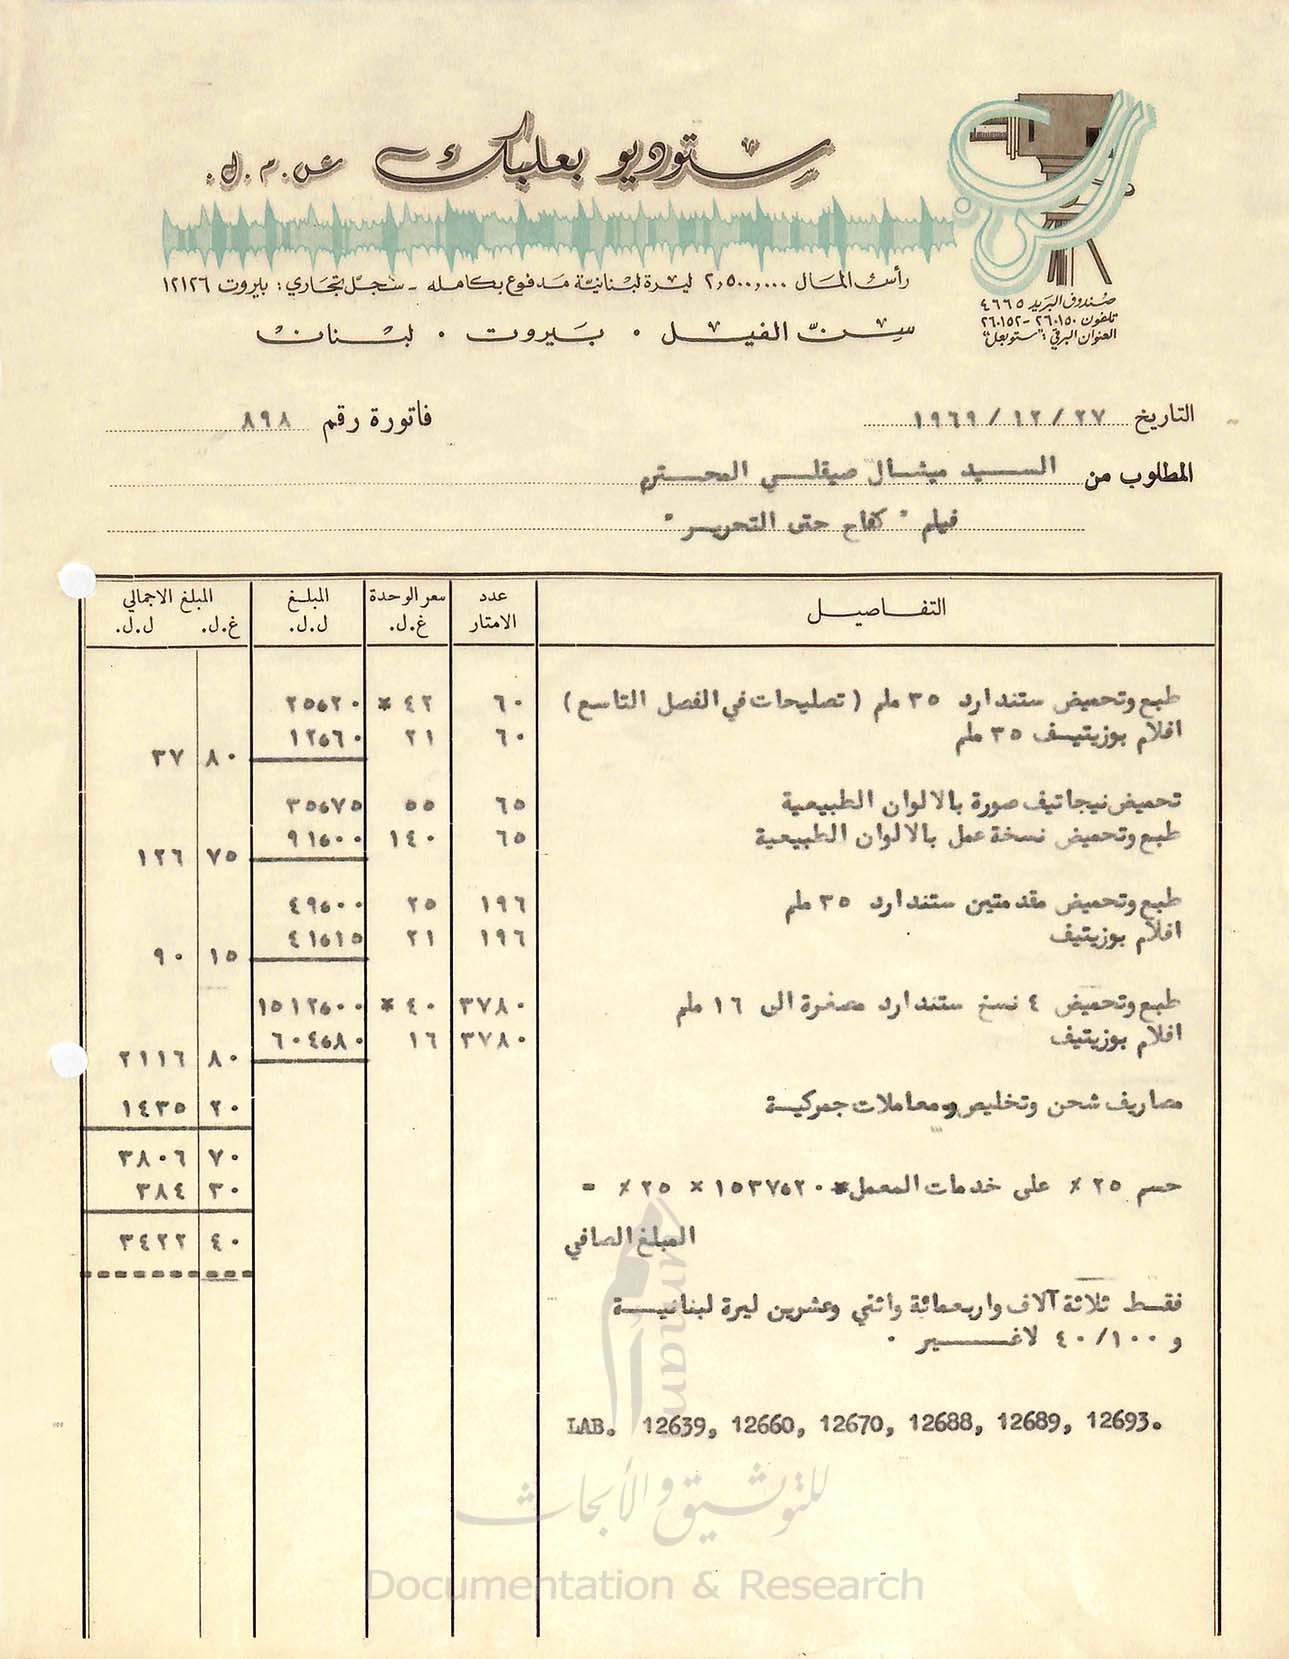 ستوديو بعلبك ش.م.ل.
رأس المال ٢,٥٠٠,٠٠٠ ليرة لبنانية مدفوع بكامله - سجل تجاري: بيروت ١٢١٢٦
سن الفيل . بيروت . لبنان
صندوق البريد ٤٦٦٥
تلفون ٢٦٠١٥٠ - ٢٦٠١٥٢
العنوان البرقي: "ستوبعل"
التاريخ ٢٧ / ١٢ / ١٩٦٩ فاتورة رقم ٨٩٨
المطلوب من السيد ميشال صيقلي المحترم
فيلم " كفاح حتى التحرير "
التفاصيل عدد الامتار سعر الوحدة غ.ل. المبلغ ل.ل. المبلغ الاجمالي غ.ل. ل.ل.
طبع وتحميض ستندارد ٣٥ ملم ( تصليحات في الفصل التاسع ) ٦٠ ٤٢ * ٢٥،٢٠
افلام بوزيتيف ٣٥ ملم ٦٠ ٢١ ١٢،٦٠
٨٠ ٣٧
تحميض نيجاتيف صورة بالالوان الطبيعية ٦٥ ٥٥ ٣٥،٧٥
طبع وتحميض نسخة عمل بالالوان الطبيعية ٦٥ ١٤٠ ٩١،٠٠
٧٥ ١٢٦
طبع وتحميض مقدمتين ستندارد ٣٥ ملم ١٩٦ ٢٥ ٤٩،٠٠
افلام بوزيتيف ١٩٦ ٢١ ٤١،١٥
١٥ ٩٠
طبع وتحميض ٤ نسخ ستندارد مصغرة الى ١٦ ملم ٣٧٨٠ ٤٠ * ١٥١٢،٠٠
افلام بوزيتيف ٣٧٨٠ ١٦ ٦٠٤،٨٠
٨٠ ٢١١٦
مصاريف شحن وتخليص ومعاملات جمركية ٢٠ ١٤٣٥
٧٠ ٣٨٠٦
حسم ٢٥ ٪ على خدمات المعمل * ١٥٣٧،٢٠ × ٢٥ ٪ = ٣٠ ٣٨٤
المبلغ الصافي ٤٠ ٣٤٢٢
فقط ثلاثة آلاف واربعمائة واثني وعشرين ليرة لبنانية
و ٤٠/١٠٠ لاغير .
LAB. 12639, 12660, 12670, 12688, 12689, 12693.
umam
للتوثيق والأبحاث
Documentation & Research